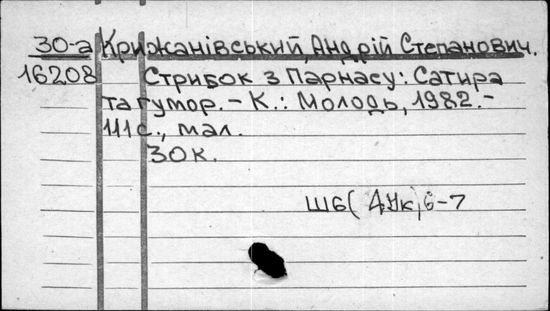 30-а Крижанівський, Андрій Степанович.
16208 Стрибок з Парнасу: Сатира
та гумор. – К.: Молодь, 1982. –
111 с., мал.
30к.
Ш6(4Ук)6-7